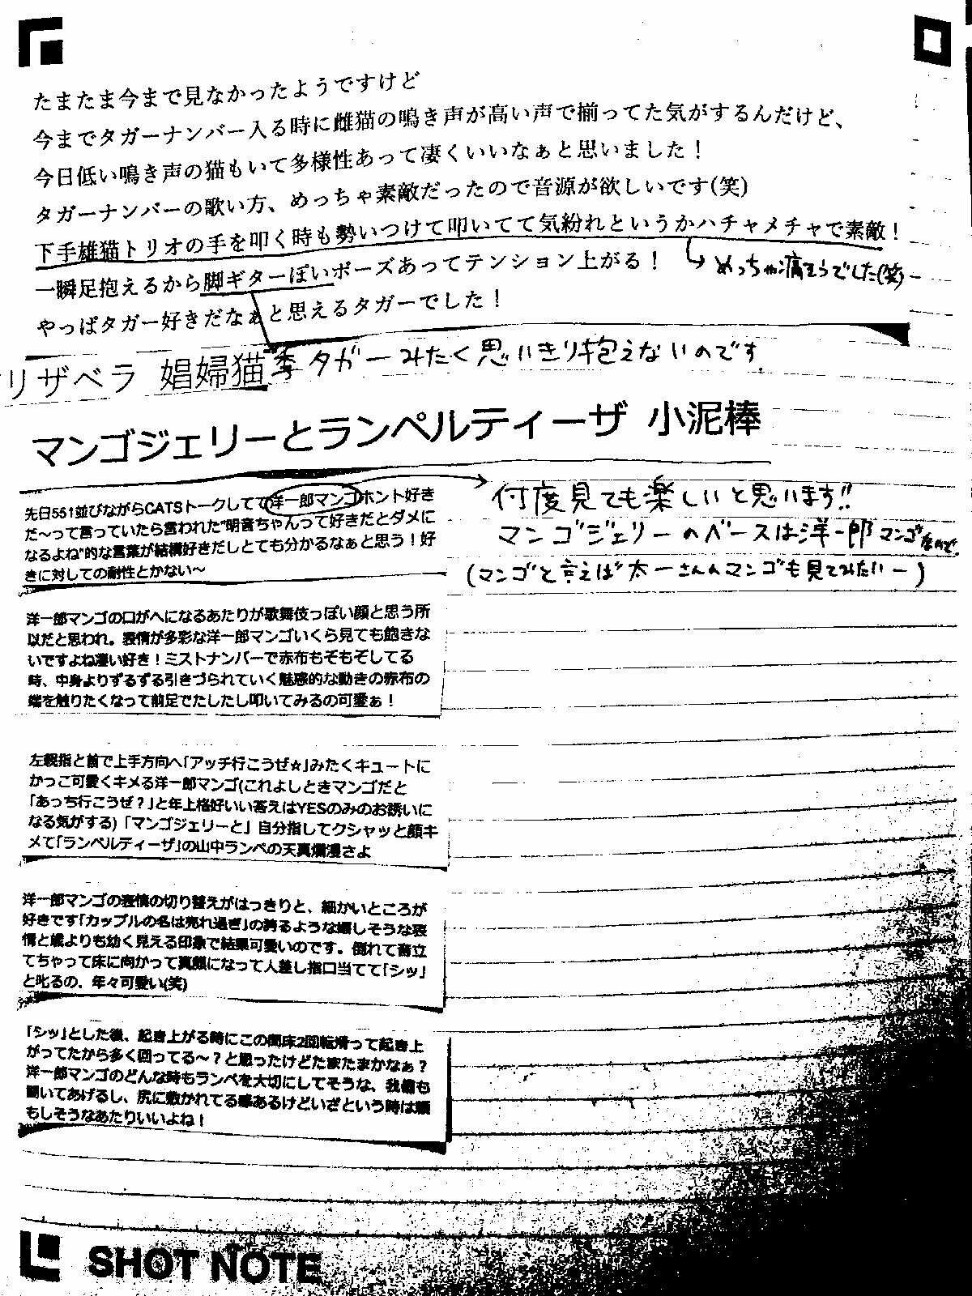 たまたま今まで見なかったようですけど
今までタガーナンバー入る時に雌猫の鳴き声が高い声で揃ってた気がするんだけど、
今日低い鳴き声の猫もいて多様性あって凄くいいなぁと思いました！
タガーナンバーの歌い方、めっちゃ素敵だったので音源が欲しいです(笑)
下手雄猫トリオの手を叩く時も勢いつけて叩いてて気紛れというかハチャメチャで素敵！
一瞬足抱えるから脚ギターぽいポーズあってテンション上がる！
めっちゃ痛そうでした(笑)
やっぱタガー好きだなぁと思えるタガーでした！
リザベラ 娼婦猫
季タガーみたく思いきり抱えないのです
マンゴジェリーとランペルティーザ 小泥棒
先日551並びながらCATSトークしてて洋一郎マンゴホント好き
だ〜って言っていたら言われた"明音ちゃんって好きだとダメに
なるよね"的な言葉が結構好きだしとても分かるなぁと思う！好
きに対しての耐性とかない〜
何度見ても楽しいと思います!!
マンゴジェリーのベースは洋一郎マンゴなので
(マンゴと言えば太一さんのマンゴも見てみたいー)
洋一郎マンゴの口がへになるあたりが歌舞伎っぽい顔と思う所
以だと思われ。表情が多彩な洋一郎マンゴいくら見ても飽きな
いですよね凄い好き！ミストナンバーで赤布もぞもぞしてる
時、中身よりずるずる引きづられていく魅惑的な動きの赤布の
端を触りたくなって前足でたしたし叩いてみるの可愛ぁ！
左親指と首で上手方向へ「アッチ行こうぜ★」みたくキュートに
かっこ可愛くキメる洋一郎マンゴ(これよしときマンゴだと
「あっち行こうぜ？」と年上格好いい答えはYESのみのお誘いに
なる気がする)「マンゴジェリーと」自分指してクシャッと顔キ
メて「ランペルティーザ」の山中ランペの天真爛漫さよ
洋一郎マンゴの表情の切り替えがはっきりと、細かいところが
好きです「カップルの名は売れ過ぎ」の誇るような嬉しそうな表
情と歳よりも幼く見える印象で結果可愛いのです。倒れて音立
てちゃって床に向かって真顔になって人差し指口当てて「シッ」
と叱るの、年々可愛い(笑)
「シッ」とした後、起き上がる時にこの間床2回転滑って起き上
がってたから多く回ってる〜？と思ったけどたまたまかなぁ？
洋一郎マンゴのどんな時もランペを大切にしてそうな、我儘も
聞いてあげるし、尻に敷かれてる感あるけどいざという時は頼
もしそうなあたりいいよね！
SHOT NOTE